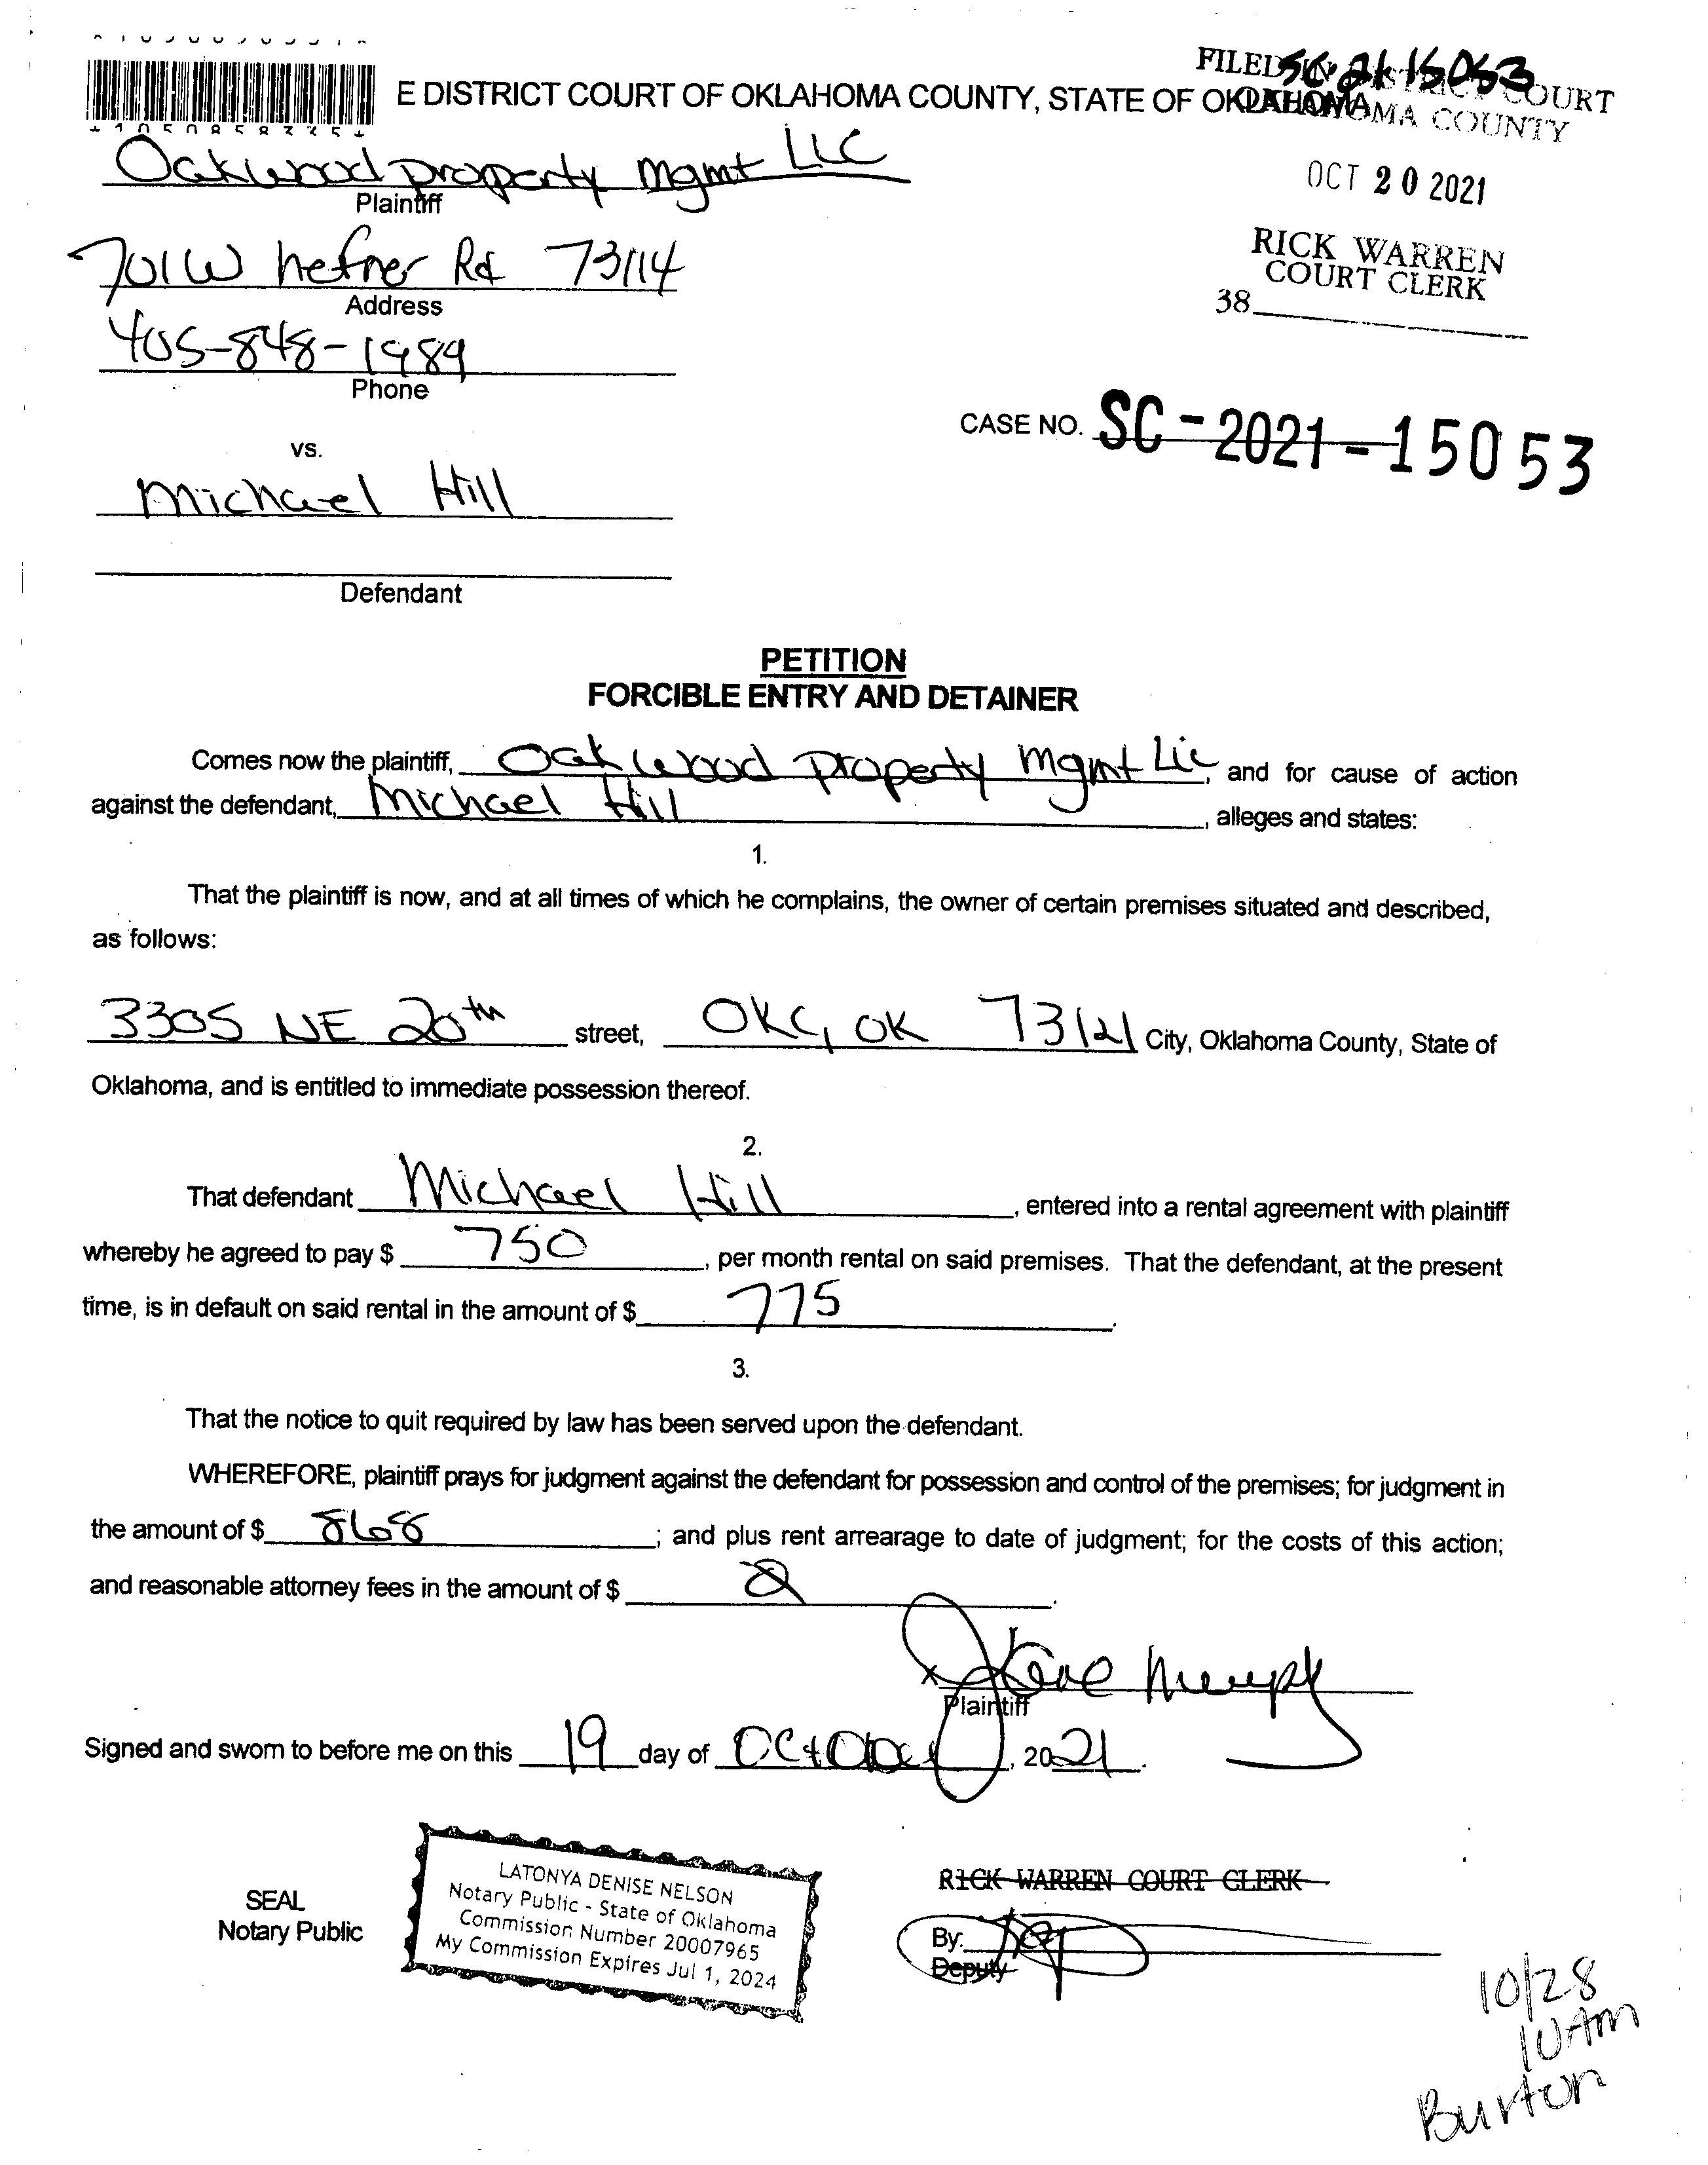 FILED IN DISTRICT COURT
SC 21 15053
E DISTRICT COURT OF OKLAHOMA COUNTY, STATE OF OKLAHOMA
OKLAHOMA COUNTY
Oakwood property mgmt LLC
Plaintiff
OCT 20 2021
701 W hefner Rd 73114
Address
RICK WARREN
COURT CLERK
38
405-848-1989
Phone
CASE NO. SC-2021-15053
vs.
Michael Hill
Defendant
PETITION
FORCIBLE ENTRY AND DETAINER
Comes now the plaintiff, Oakwood Property Mgmt LLC, and for cause of action
against the defendant, Michael Hill, alleges and states:
1.
That the plaintiff is now, and at all times of which he complains, the owner of certain premises situated and described,
as follows:
3305 NE 20th street, OKC, OK 73121 City, Oklahoma County, State of
Oklahoma, and is entitled to immediate possession thereof.
2.
That defendant Michael Hill, entered into a rental agreement with plaintiff
whereby he agreed to pay $ 750, per month rental on said premises. That the defendant, at the present
time, is in default on said rental in the amount of $ 775.
3.
That the notice to quit required by law has been served upon the defendant.
WHEREFORE, plaintiff prays for judgment against the defendant for possession and control of the premises; for judgment in
the amount of $ 868; and plus rent arrearage to date of judgment; for the costs of this action;
and reasonable attorney fees in the amount of $
x
Plaintiff
Signed and sworn to before me on this 19 day of October, 2021.
SEAL
Notary Public
LATONYA DENISE NELSON
Notary Public - State of Oklahoma
Commission Number 20007965
My Commission Expires Jul 1, 2024
RICK WARREN COURT CLERK
By:
Deputy
10/28
10AM
Burton